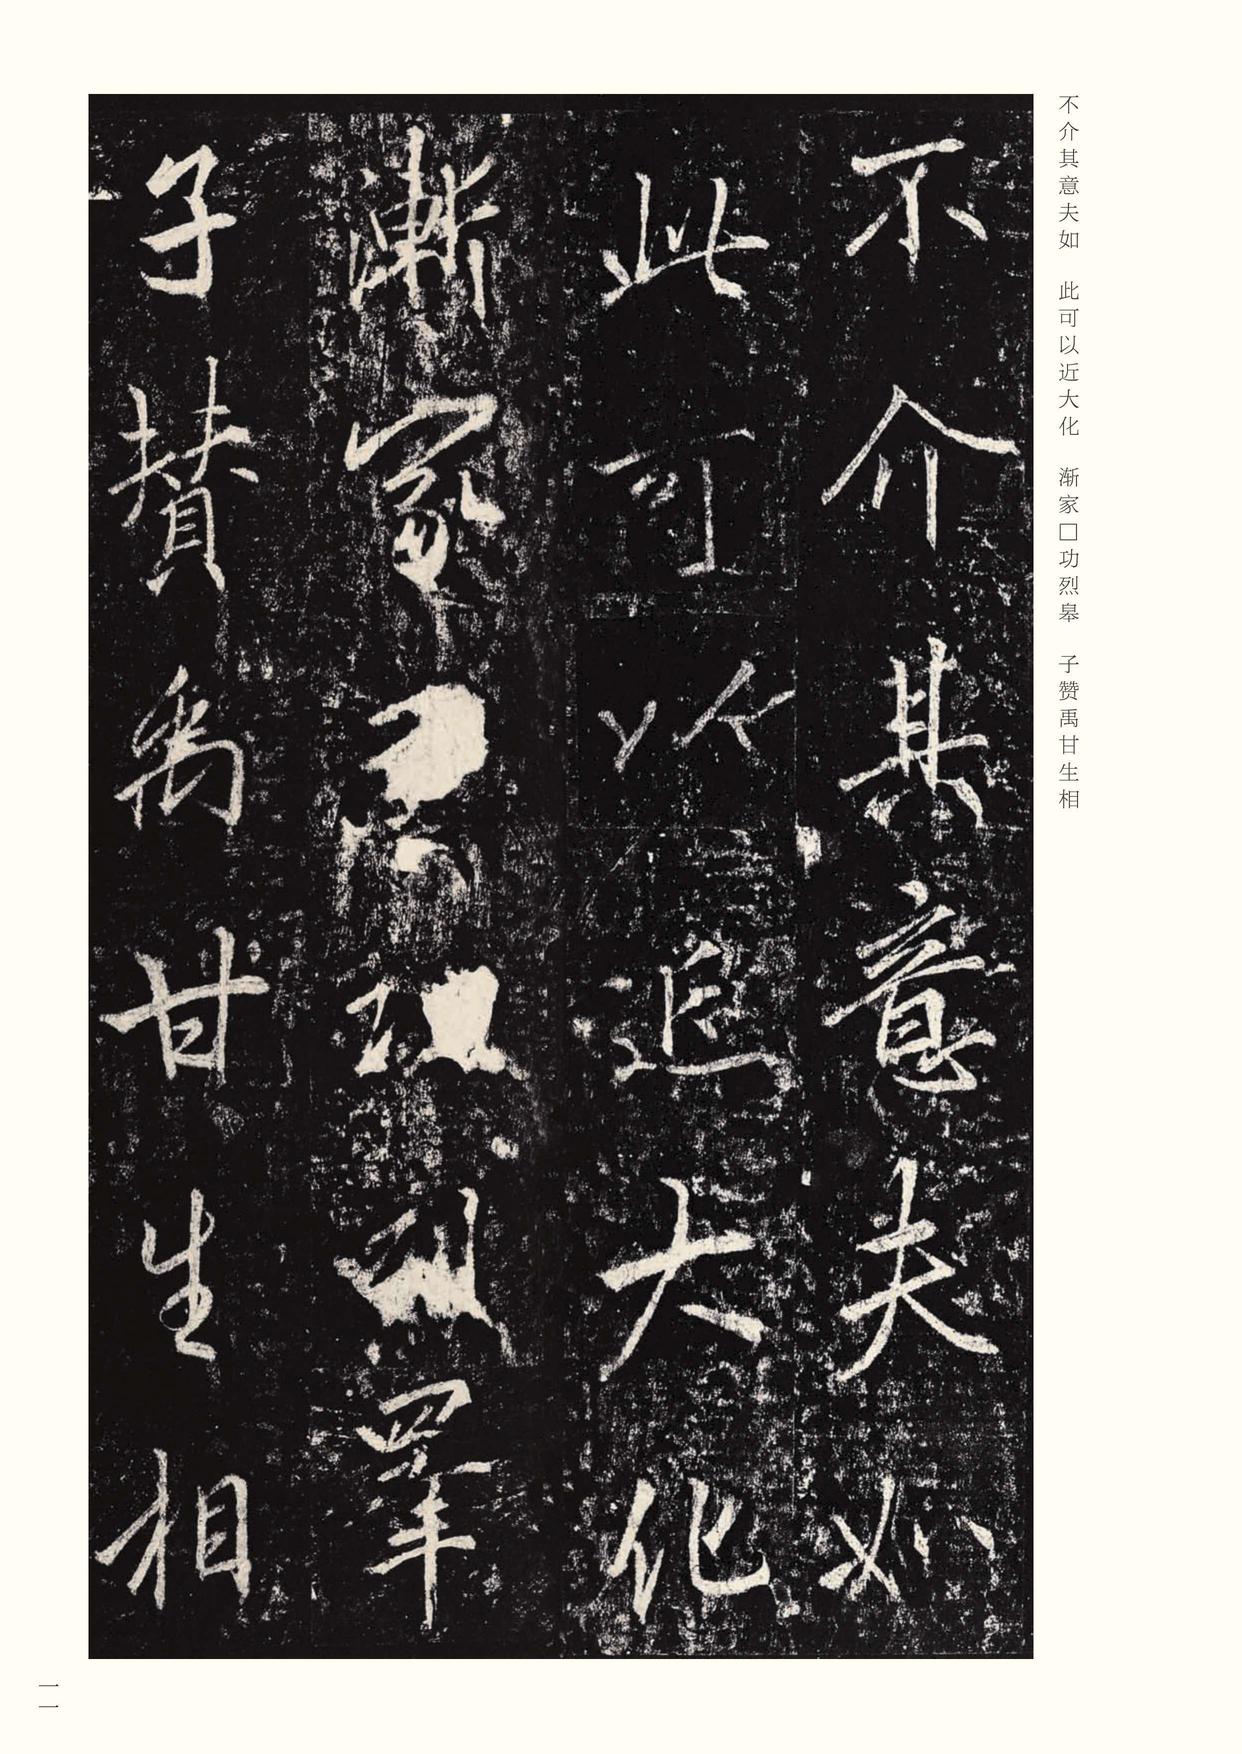 不介其意夫如　此可以近大化　渐家□功烈皋　子赞禹甘生相
不介其意夫如
此可以近大化
漸家
子賛禹甘生相
一一